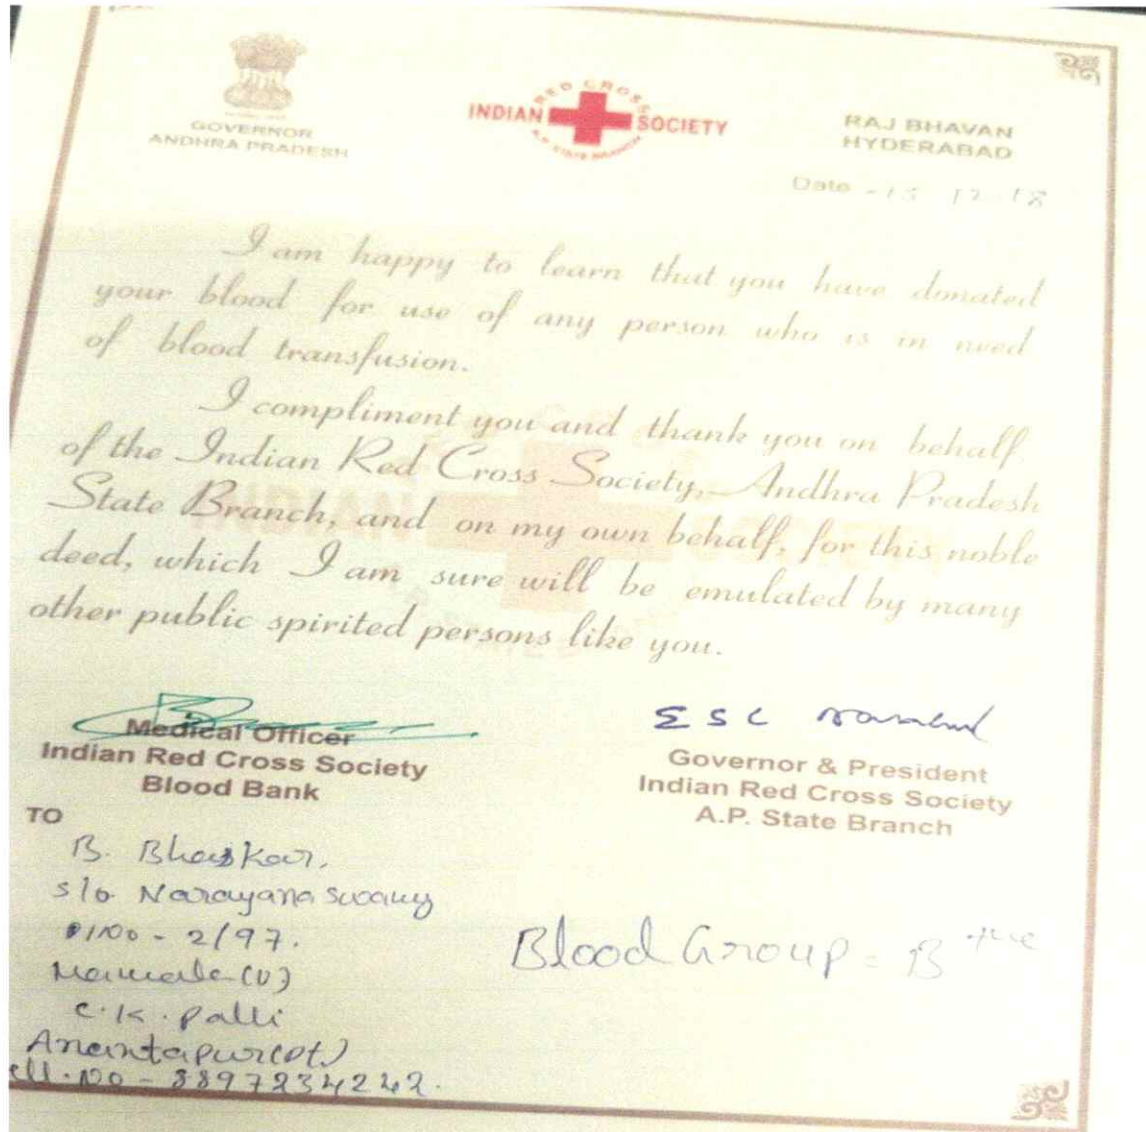 GOVERNOR
ANDHRA PRADESH
INDIAN RED CROSS SOCIETY
A.P. STATE BRANCH
RAJ BHAVAN
HYDERABAD
Date - 15 12-18
I am happy to learn that you have donated
your blood for use of any person who is in need
of blood transfusion.
I compliment you and thank you on behalf
of the Indian Red Cross Society, Andhra Pradesh
State Branch, and on my own behalf, for this noble
deed, which I am sure will be emulated by many
other public spirited persons like you.
Medical Officer
Indian Red Cross Society
Blood Bank
E S L
Governor & President
Indian Red Cross Society
A.P. State Branch
TO
B. Bhaskar,
S/o Narayana swamy
2/97.
C.K. Palli
Anantapur(Dt)
ell. No - 8897234242.
Blood Group = B +ve